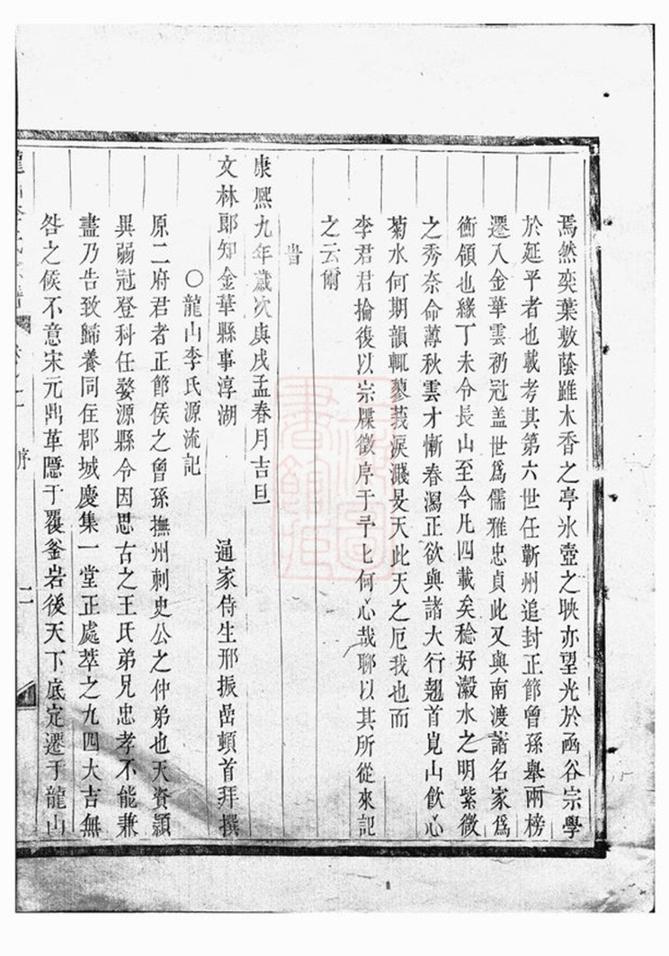 焉然奕葉敷蔭雖木香之亭氷壺之映亦望光於函谷宗學
於延平者也載考其第六世任蘄州追封正節曾孫舉兩榜
遷入金華雲礽冠盖世爲儒雅忠貞此又與南渡諸名家爲
衡領也緣丁未令長山至今凡四載矣稔好瀫水之明紫微
之秀奈命薄秋雲才慚春瀉正欲與諸大行翹首崑山飲心
菊水何期韻輒蓼莪淚濺旻天此天之厄我也而
李君君掄後以宗牒徵序于予匕何心哉聊以其所從來記
之云爾
旹
康熙九年歲次庚戌孟春月吉旦
文林郎知金華縣事淳湖 通家侍生邢振嵒頓首拜撰
○龍山李氏源流記
原二府君者正節侯之曾孫撫州刺史公之仲弟也天資穎
異弱冠登科任婺源縣令因思古之王氏弟兄忠孝不能兼
盡乃告致歸養同在郡城慶集一堂正處萃之九四大吉無
咎之候不意宋元鼎革隱于覆釜岩後天下底定遷于龍山
序 二